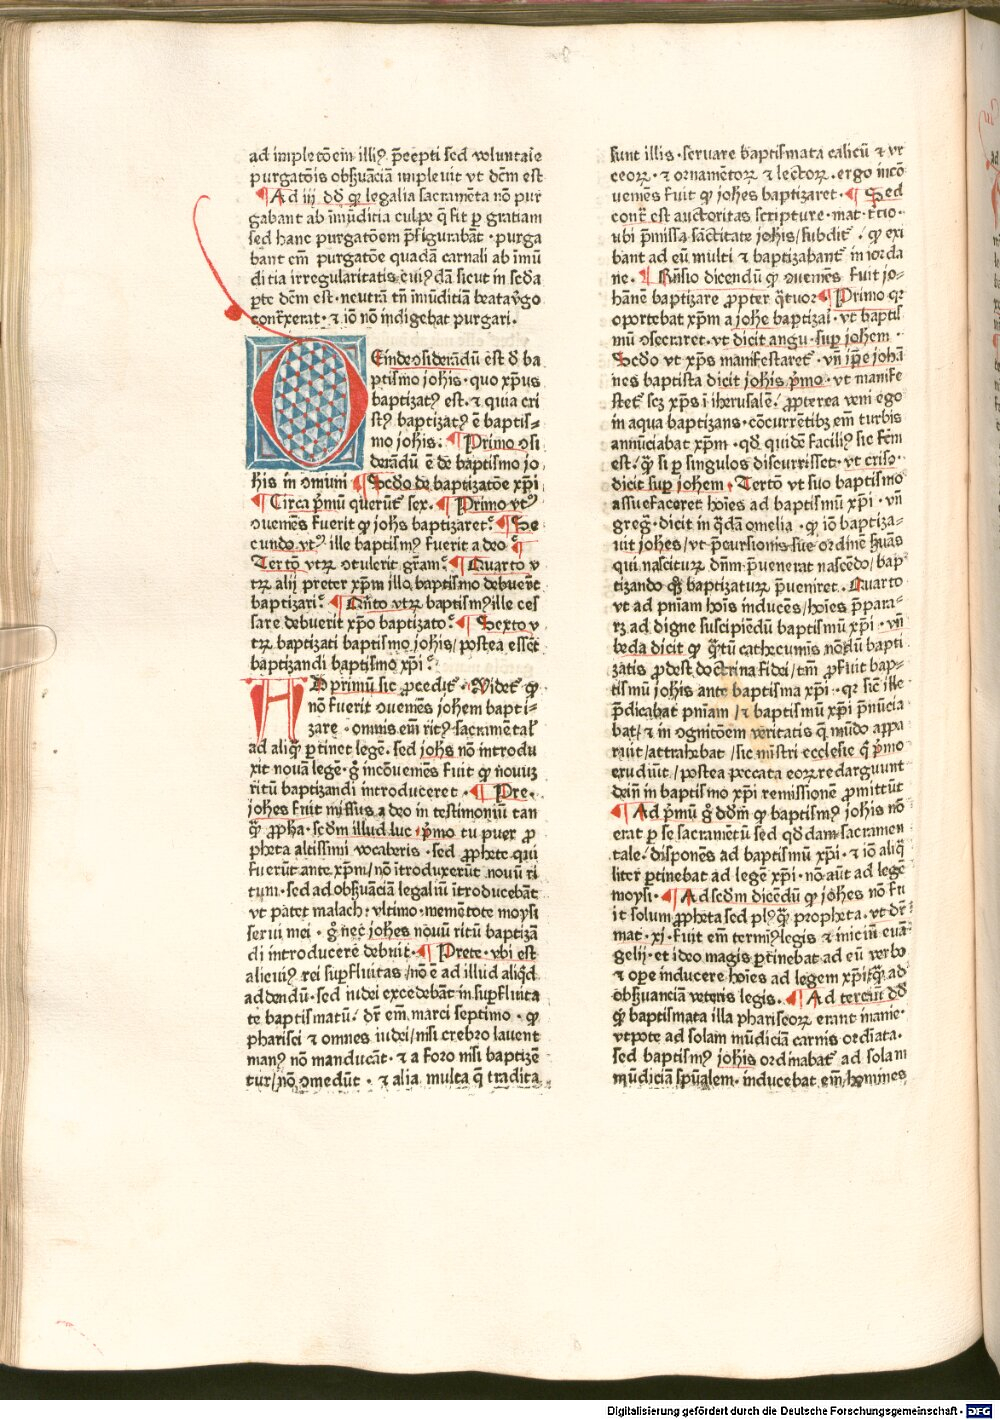 ad impletōem illiꝰ p̄cepti sed voluntaīe
purgatōis obẜuāciā impleuit vt dc̄m est
¶ Ad iij dd̄ ꝙ legalia sacramēta nō pur
gabant ab īmūditia culpe q̄ fit ꝑ gratiam
sed hanc purgatōem p̄figurabāt · purga
bant em̄ purgatōe quadā carnali ab īmū
ditia irregularitatis cuiꝰdā sicut in scda
ꝑte dc̄m est · neutrā tn̄ īmūditiā beata v̄go
cont̄xerat · ⁊ iō nō indigebat purgari.
Deinde ꝯsiderādū est d̄ ba
ptismo joh̄is · quo xp̄us
baptizatꝰ est. ⁊ quia cri
stꝰ baptizatꝰ ē baptis-
mo joh̄is. ¶ Primo ꝯsi
derādū ē de baptismo jo
h̄is in cōmuni ¶ Scdo de baptizatōe xp̄i
¶ Circa p̄mū querūt̄ sex. ¶ Primo vtꝝ
ꝯueniēs fuerit ꝙ joh̄s baptizaret. ¶ Se
cundo. vtꝝ ille baptismꝰ fuerit a deo ¶
Tertō vtꝝ ꝯtulerit gr̄am. ¶ Quarto v
tꝝ alij preter xp̄m illo baptismo debuer̄t
baptizari. ¶ Qn̄to vtꝝ baptismꝰ ille ces
sare debuerit xp̄o baptizato. ¶ Sexto v
tꝝ baptizati baptismo joh̄is / postea essēt
baptizandi baptismo xp̄i.
AD primū sic ꝓcedit̄ · Videt̄ ꝙ
nō fuerit ꝯueniēs joh̄em bapti-
zare · omnis em̄ ritꝰ sacramētal̄
ad aliq̄ ꝑtinet legē. sed joh̄s nō introdu
xit nouā legē · g̊ incōueniēs fuit ꝙ nouuꝫ
ritū baptizandi introduceret · ¶ Pre ·
joh̄es fuit missus a deo in testimoniū tan
q̄ ꝓph̄a · scdm illud luc · p̄mo tu puer ꝓ
pheta altissimi vocaberis · sed ꝓphete qui
fuerūt ante xp̄m / nō ītroduxerūt nouū ri
tum · sed ad obẜuāciā legaliū ītroducebāt
vt patet malach · vltimo · memētote moysi
serui mei · g̊ nec joh̄es nouū ritū baptizā
di introducere debuit · ¶ Prete · vbi est
alicuiꝰ rei suꝑfluitas / nō ē ad illud aliqd
addendū · sed iudei excedebāt in suꝑfluita
te baptismatū. dr̄ em̄ marci septimo · ꝙ
pharisei ⁊ omnes iudei / nisi crebro lauent
manꝰ nō manducāt · ⁊ a foro nisi baptizē
tur / nō ꝯmedūt · ⁊ alia multa q̄ tradita
sunt illis · seruare baptismata calicū ⁊ vr
ceoꝝ · ⁊ ornamētoꝝ ⁊ lectoꝝ. ergo incō
ueniēs fuit ꝙ joh̄es baptizaret · ¶ Sed
cont̄ est auctoritas scripture · mat · tc̄io ·
vbi p̄missa sāctitate joh̄is / subdit̄. ꝙ exi
bant ad eū multi ⁊ baptizabant̄ in iorda
ne. ¶ Rn̄sio dicendū ꝙ ꝯueniēs fuit jo-
hāne baptizare ꝓpter q̄tuor ¶ Primo qr
oportebat xp̄m a joh̄e baptizai · vt baptis
mū ꝯsecraret. vt dicit augu · suꝑ joh̄em ·
Scdo vt xp̄s manifestaret̄ · vn̄ ip̄e johā
nes baptista dicit joh̄is p̄mo · vt manife
stet̄ scꝫ xp̄s ī ih̄erusalē. ꝓpterea veni ego
in aqua baptizans · cōcurrētibꝫ em̄ turbis
annūciabat xp̄m · qd̄ quidē faciliꝰ sic fc̄m
est. q̄ si ꝑ singulos discurrisset · vt criso ·
dicit suꝑ joh̄em · Tertō vt suo baptismo
assuefaceret hoīes ad baptismū xp̄i · vn̄
greg̊ · dicit in q̄dā omelia · ꝙ iō baptiza-
uit joh̄es / vt p̄cursionis sue ordinē ẜuās
qui nascitur dn̄m p̄uenerat nascēdo / bap
tizando q̊ꝫ baptizaturꝫ p̄ueniret. Quarto
vt ad pn̄iam hoīs inducēs / hoīes p̄para-
rꝫ ad digne suscipiēdū baptismū xp̄i · vn̄
beda dicit ꝙ q̄tū cathecumīs nōdū bapti
zatis ꝓdest doctrina fidei / tm̄ ꝓfuit bap-
tismū joh̄is ante baptisma xp̄i · qr sic̄ ille
p̄dicabat pn̄iam / ⁊ baptismū xp̄i p̄nūcia
bat / ⁊ in ognitōem veritatis q̄ mūdo appa
ruit / attrahebat / sic mīstri ecclesie q̄ p̄mo
erudiūt / postea peccata eoꝝ redarguunt
dein̄ in baptismo xp̄i remissionē ꝓmittūt
¶ Ad p̄mū g̊ dd̄m ꝙ baptismꝰ joh̄is nō
erat ꝑ se sacramētū sed qd̄dam sacramen
tale. disponēs ad baptismū xp̄i · ⁊ iō aliq̄
liter ꝑtinebat ad legē xp̄i · nō aūt ad legē
moysi · ¶ Ad scdm dicēdū ꝙ joh̄es nō fu
it solum ꝓpheta sed plꝰq̄ propheta. vt dr̄
mat · xj · fuit em̄ termīꝰ legis ⁊ iniciū euā-
gelij · et ideo magis ꝑtinebat ad eū verbo
⁊ ope inducere hoīes ad legem xp̄i / q̄ ad
obẜuanciā veteris legis. ¶ Ad terciū dd̄
q̄ baptismata illa phariseoꝝ erant inanie ·
vtpote ad solam mūdiciā carnis ordīata ·
sed baptismꝰ joh̄is ordinabat̄ ad solam
mūdiciā spūalem · inducebat em̄ homines
Digitalisierung gefördert durch die Deutsche Forschungsgemeinschaft - DFG